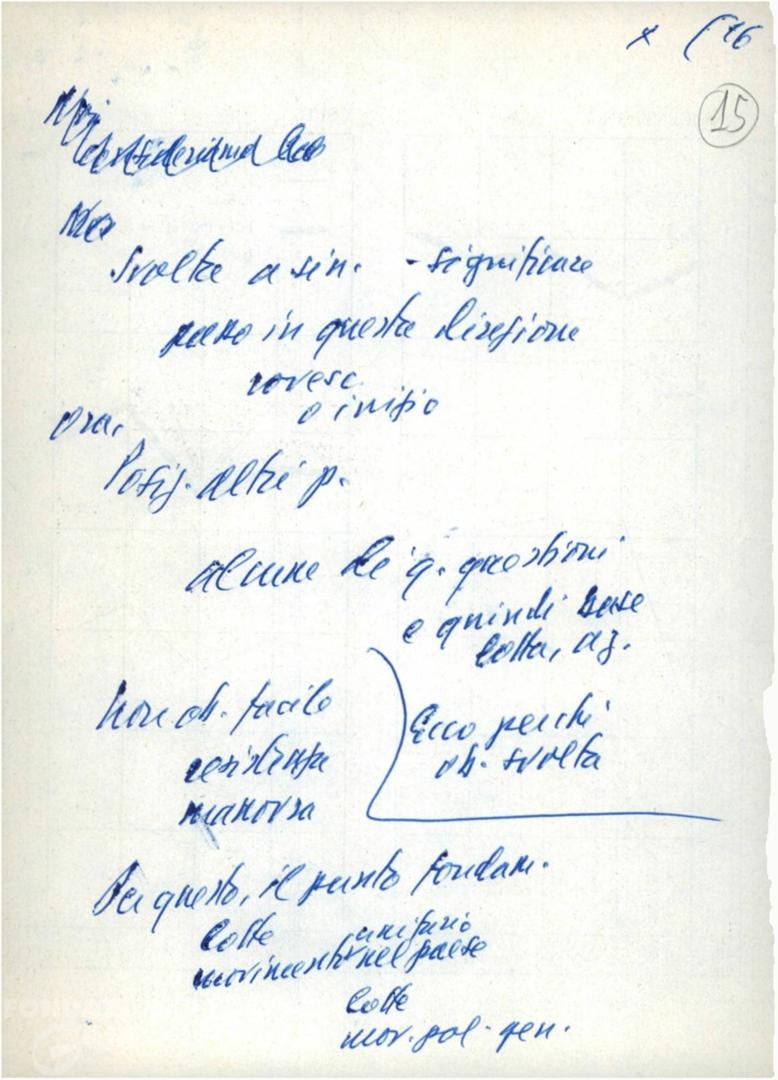 x (76
15
Noi
consideriamo
No
Svolta a sin. - significare
passo in questa direzione
rovesc.
o inizio
ora,
Posiz. altri p.
alcune di q. questioni
e quindi base
lotta, az.
Non ob. facile
resistenza
manovra
Ecco perché
ob. svolta
Per questo, il punto fondam.
lotte unitario
movimento nel paese
lotte
mov. pol. gen.